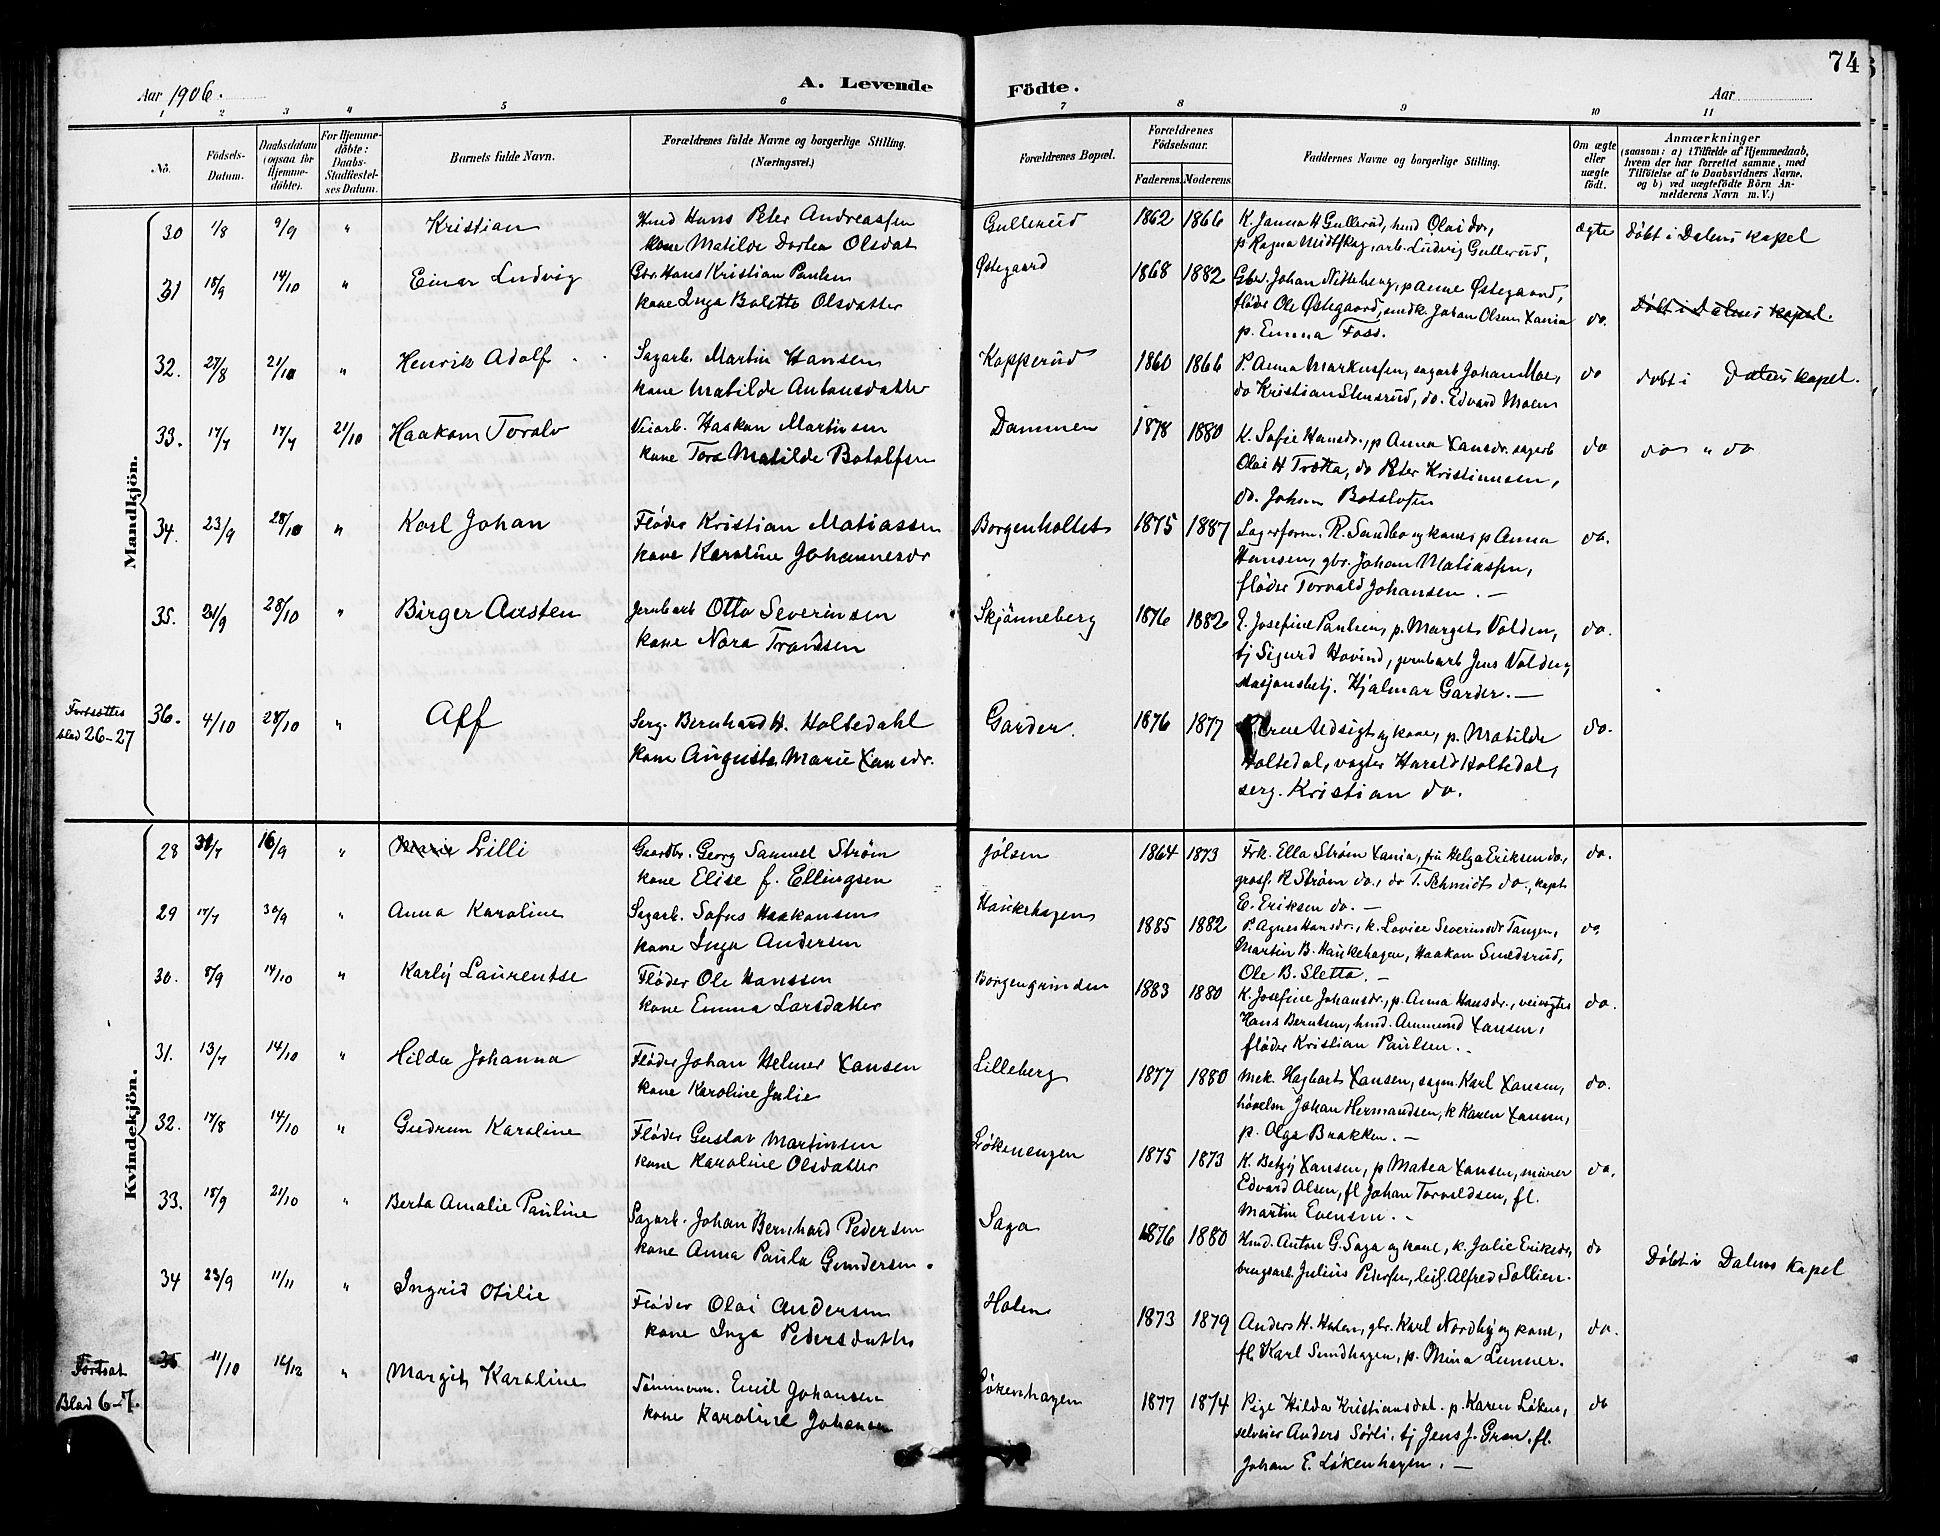 74
Aar 1906.
A. Levende
Födte.
Aar
1 2 3 4 5 6 7 8 9 10 11
No.
Födsels-
Datum.
Daabsdatum
(ogsaa for
Hjemme-
döbte).
For Hjemme-
döbte:
Daabs-
Stadfæstel-
ses Datum.
Barnets fulde Navn.
Forældrenes fulde Navne og borgerlige Stilling.
(Næringsvei.)
Forældrenes Bopæl.
Forældrenes
Födselsaar.
Faderens. Moderens.
Faddernes Navne og borgerlige Stilling.
Om ægte
eller
uægte
födt.
Anmærkninger
(saasom: a) i Tilfælde af Hjemmedaab,
hvem der har forrettet samme, med
Tilföielse af to Daabsvidners Navne,
og b) ved uægtefödte Börn An-
melderens Navn m. V.)
Mandkjön.
30 1/8 9/9 " Kristian
Hmd Hans Peter Andreassen
kone Matilde Dorthea Olsdat
Gullerud 1862 1866
K. Janna H Gullerud, hmd Olai do,
p. Ragna Midtskog, arb. Ludvig Gullerud,
ægte
Døbt i Dalens kapel
31 15/9 14/10 " Einar Ludvig
Gbr. Hans Kristian Paulsen
kone Inga Bolette Olsdatter
Østegaard 1868 1882
Gbr. Johan Nitteberg, p Anne Østegaard,
fløder Ole Østegaard, smdk. Johan Olsen Xania
p. Emma Foss.
do.
Døbt i Dalens kapel.
32. 27/8 21/10 " Henrik Adolf
Sagarb. Martin Hansen
kone Matilde Antonsdatter
Kopperud 1860 1866
P. Anna Markussen, sagarb Johan Moe,
do Kristian Stensrud, do. Edvard Moen
do
døbt i Dalens kapel.
33. 17/7 17/7 21/10 Haakon Toralv
Veiarb. Haakon Martinsen
kone Tora Matilde Botolfsen
Dammen 1878 1880
K. Sofie Hansdr, p Anna Xansdr. sagarb
Olai H Trøtta, do Peter Kristiansen,
do. Johan Botolvsen
do
do " do
34. 23/9 28/10 " Karl Johan
Fløder Kristian Matiassen
kone Karoline Johannesdr
Borgenholtet 1875 1887
Lagerform. R. Sandbo og kone, p Anna
Hansen, gbr. Johan Matiassen,
fløder Torvald Johansen. —
do.
35. 21/9 28/10 " Birger Austen
Jernbarb Otto Severinsen
kone Nora Trondsen
Skjønneberg 1876 1882
E. Josefine Paulsen, p. Margit Volden,
tj Sigurd Hovind, jernbarb Jens Volden,
stasjonsbetj. Hjalmar Garder. —
do.
Fortsættes
blad 26-27
36. 4/10 28/10 " Alf
Serg. Bernhard H. Holtedahl
kone Augusta Marie Xansdr.
Garder. 1876 1877
Arne Udsigt og kone, p. Matilde
Holtedal, vogter Harald Holtedal,
serg. Kristian do.
do.
Kvindekjön.
28 31/7 16/9 " Marie Lilli
Gaardbr. Georg Samuel Strøm
kone Elise f. Ellingsen
Jølsen 1864 1873
Frk. Ella Strøm Xania, fru Helga Eriksen do,
gross. R Strøm do., do T. Schmidt do., kapt
E. Eriksen do. —
do.
29 17/7 30/9 " Anna Karoline
Sagarb. Sofus Haakonsen
kone Inga Andersen
Haukehagen 1885 1882
P. Agnes Hansdr., k. Lovise Severinsdr Tangen,
Martin B. Haukehagen, Haakon Smedsrud,
Ole B. Sletta. —
do.
30. 8/9 14/10 " Karly Laurentse
Fløder Ole Hanssen
kone Emma Larsdatter
Borgengrinden 1883 1880
K. Josefine Johansdr., p. Anna Hansdr., veivogter
Hans Berntsen, hmd. Ammund Xansen,
fløder Kristian Paulsen. —
do.
31. 13/7 14/10 " Hilda Johanna
Fløder Johan Helmer Xansen
kone Karoline Julie
Lilleberg 1877 1880
Mek. Hagbart Xansen, sagm Karl Xansen,
høvelm Johan Hermandsen, k Karen Xansen,
p. Olga Brakken. —
do.
32. 17/8 14/10 " Gudrun Karoline
Fløder Gustav Martinsen
kone Karoline Olsdatter
Løkenengen 1875 1873
K. Betzy Xansen, p Matea Xansen, murer
Edvard Olsen, fl Johan Torvaldsen, fl.
Martin Evensen. —
do.
33. 18/9 21/10 " Berta Amalie Pauline
Sagarb. Johan Bernhard Pedersen
kone Anna Paula Gundersen.
Saga 1876 1880
Hmd. Anton G. Saga og kone, k. Julie Eriksdr,
brugsarb. Julius Pedersen, leil. Alfred Sollien.
do
Døbt i Dalens kapel
34 23/9 11/11 " Ingrid Otilie
Fløder Olai Andersen
kone Inga Pedersdatter
Holen 1873 1879
Anders H. Holen, gbr. Karl Nordby og kone,
fl. Karl Sundhagen, p. Mina Lunner.
do.
Fortsat
Blad 6-7.
35 11/10 16/12 " Margit Karoline
Tømmerm. Emil Johansen
kone Karoline Johansen
Løkenhagen 1877 1874
Pige Hilda Kristiansdat. p. Karen Løken,
selveier Anders Sørli, tj Jens J. Gran, fl.
Johan E. Løkenhagen. —
do